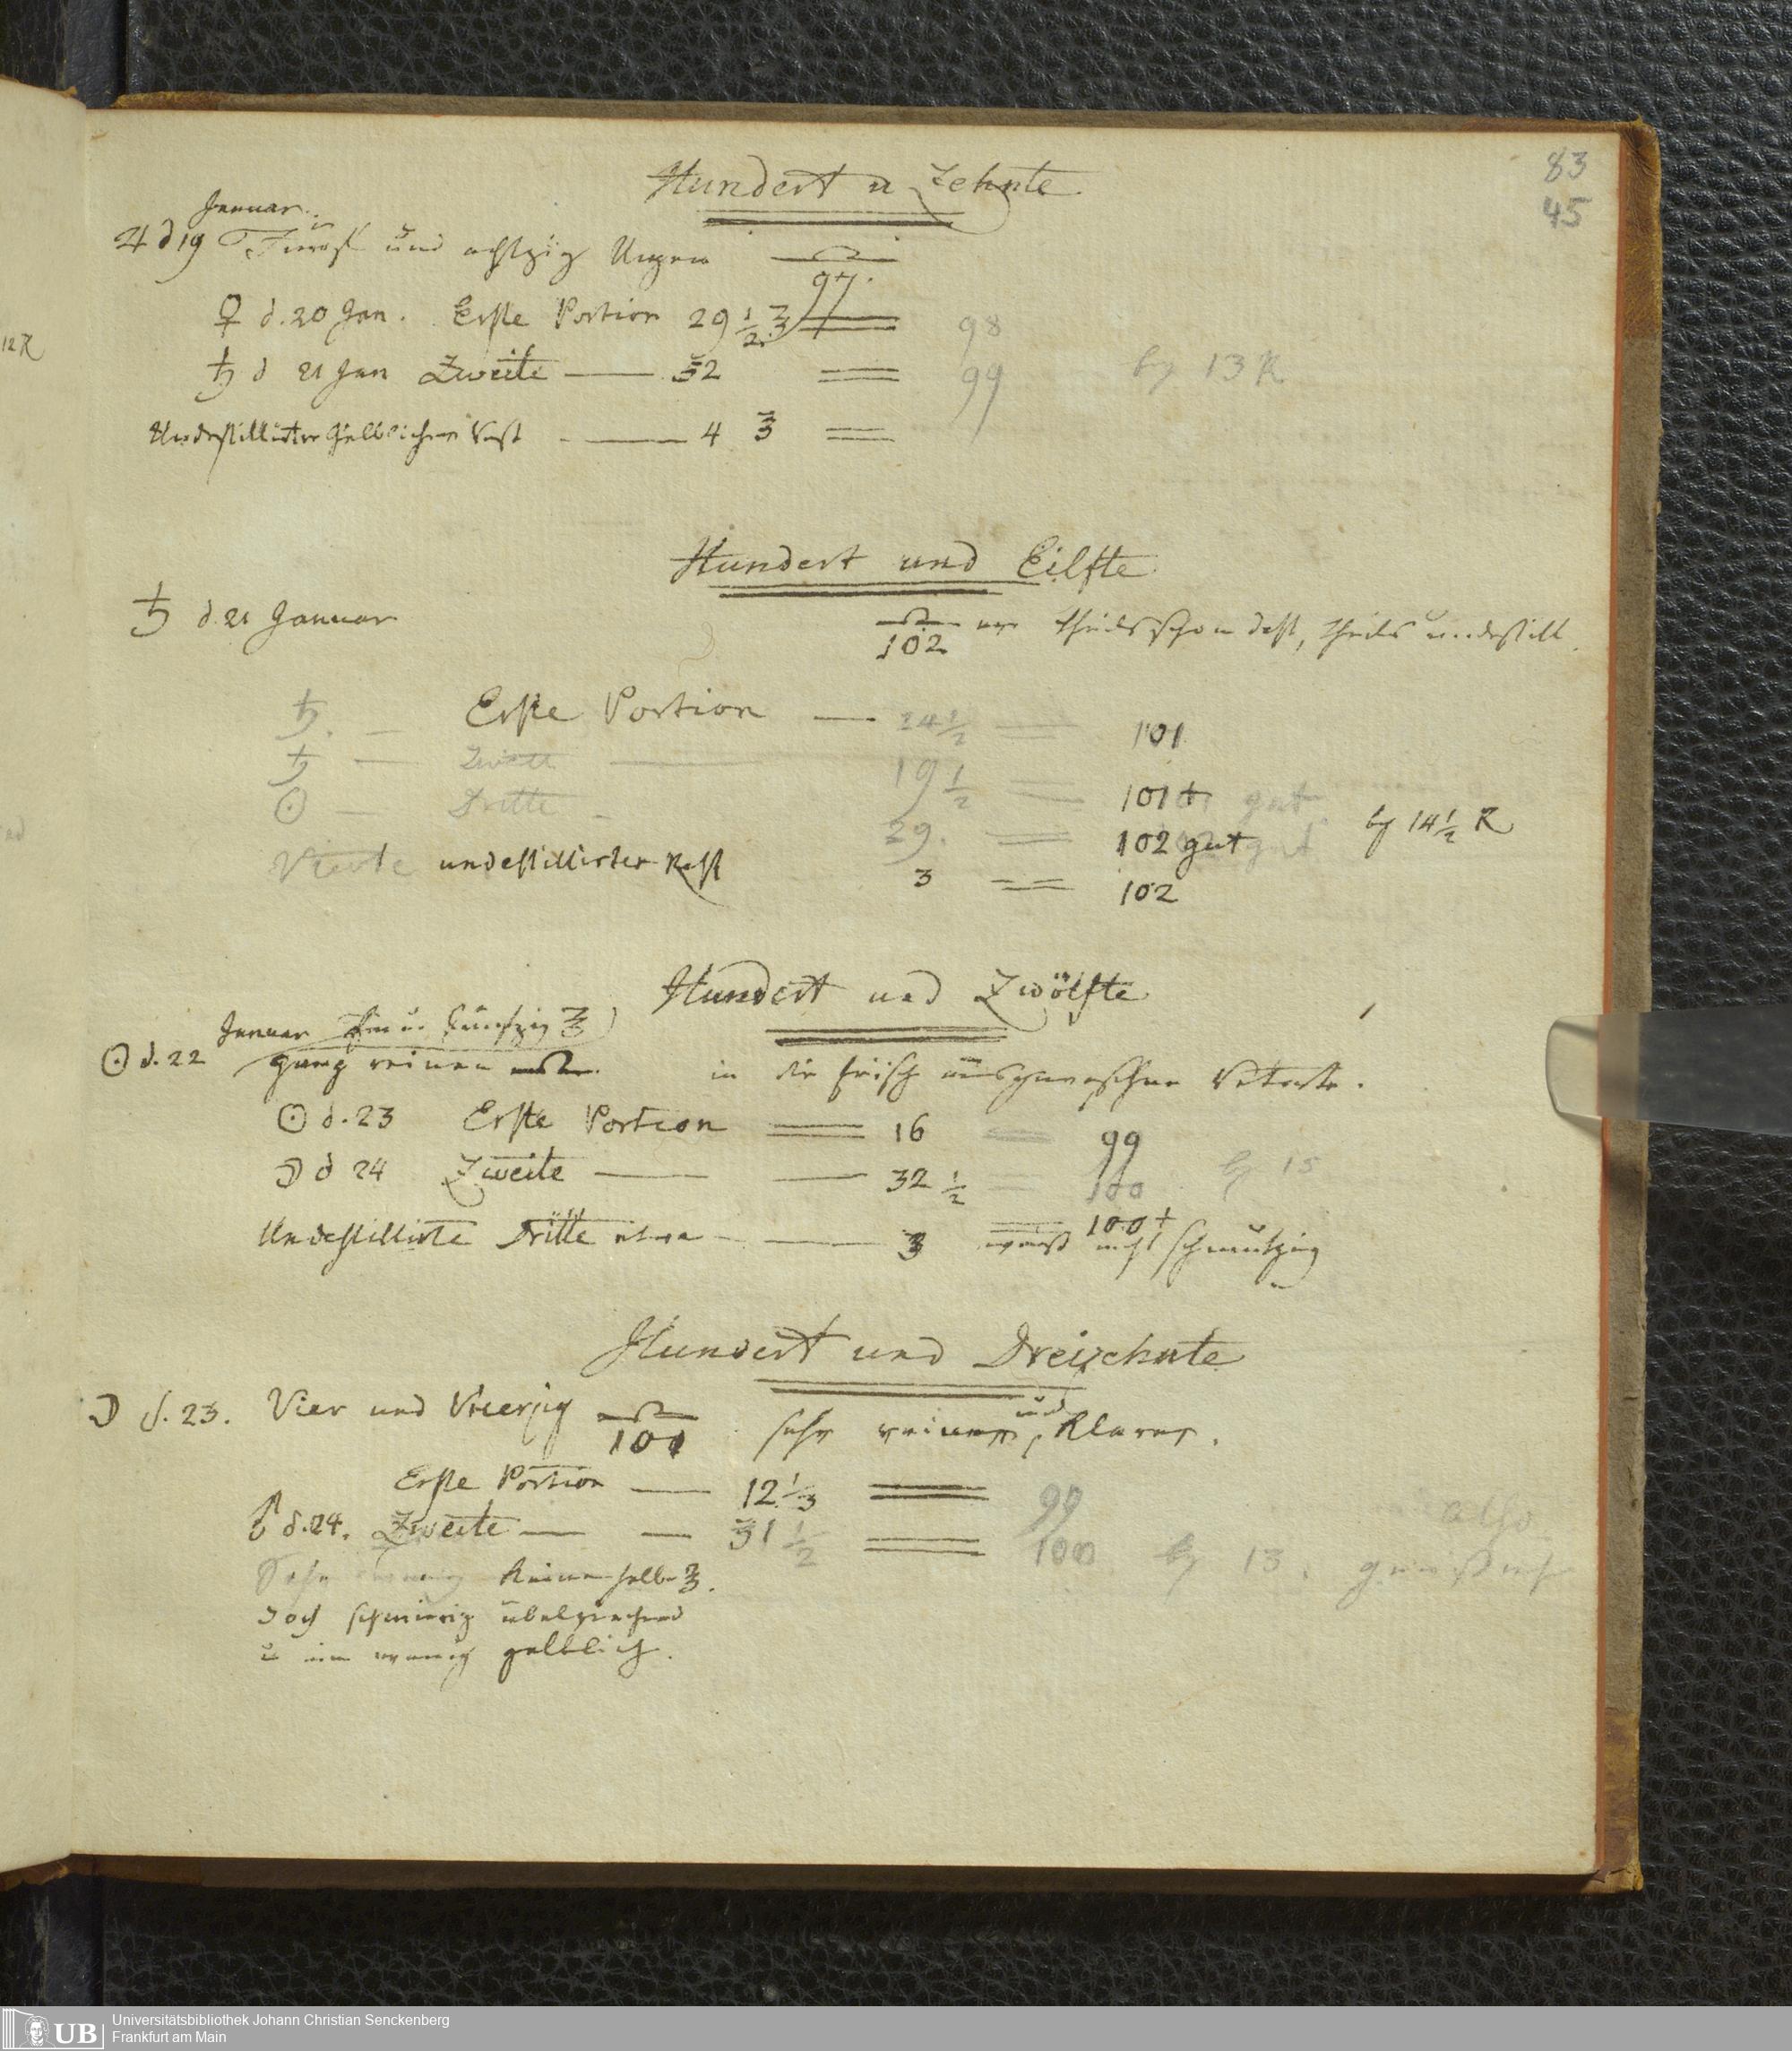 83
45
Hundert u Zehnte
Januar
♃ d 19 und achtzig Unzen
97.
♀ d. 20 Jan. Erste Portion 29 1/2 ℥ 98
♄ d 21 Jan Zweite — 32 = 99 by 13 R
Undestillirter Gelblicher Rest — 4 ℥ =
12 R
Hundert und Eilfte
♄ d. 21 Januar
102 theils schon dest, theils undestill.
♄. — Erste Portion — 24 1/2 = 101
♄ — Zweite — 19 1/2 = 101 + gut
☉ — Dritte — 29. = 102 gut by 14 1/2 R
Vierte undestillirter Rest 3 = 102
Hundert und Zwölfte
Januar fünfzig ℥
☉ d. 22 ganz reinen in die frisch ausgewaschne Retorte.
☉ d. 23 Erste Portion = 16 = 99
☽ d 24 Zweite — — 32 1/2 = 100 by 15
Undestillirte Dritte etwa — — 3 = 100 +
weiß nicht schmutzig
Hundert und Dreizehnte
☽ d. 23. Vier und Vierzig 100 sehr reines und Klares.
Erste Portion — 12 1/3 = 99
♂ d. 24. Zweite — — 31 1/2 = 100 by 13. also
Sehr wenig Keine halbe ℥.
doch schmierig übelriechend
u ein wenig gelblich.
Universitätsbibliothek Johann Christian Senckenberg
Frankfurt am Main
UB